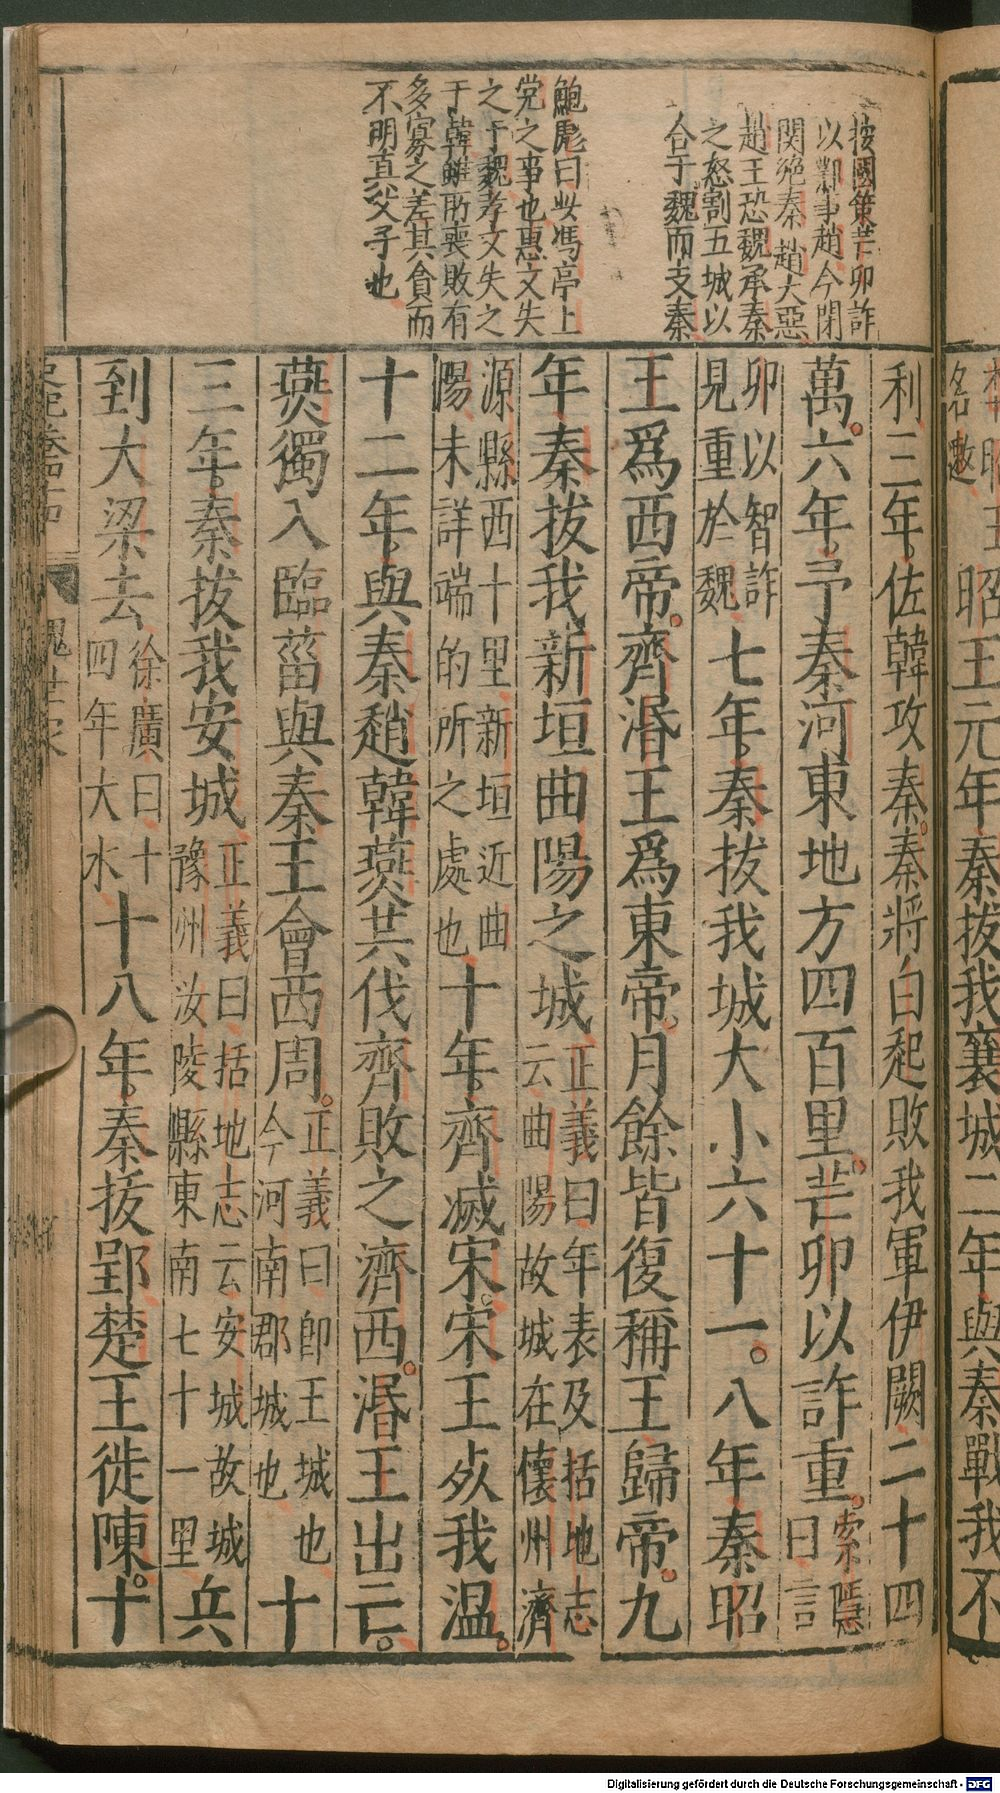 按國策芒卯詐
以鄴事趙今閉
関絶秦趙大惡
趙王恐魏承秦
之怒割五城以
合于魏而支秦
鮑彪曰此馮亭上
党之事也惠文失
之于魏孝文失之
于韓雖所喪敗有
多寡之差其貪而
不明真父子也
昭王元年秦拔我襄城二年與秦戰我不
利三年佐韓攻秦秦將白起敗我軍伊闕二十四
萬六年予秦河東地方四百里芒卯以詐重索隱曰言
卯以智詐見重於魏七年秦拔我城大小六十一。八年秦昭
王爲西帝齊湣王爲東帝月餘皆復稱王歸帝九
年秦拔我新垣曲陽之城正義曰年表及括地志云曲陽故城在懷州濟
源縣西十里新垣近曲陽未詳端的所之處也十年齊滅宋宋王死我溫。
十二年與秦趙韓燕共伐齊敗之濟西湣王出亡。
燕獨入臨菑與秦王會西周正義曰卽王城也今河南郡城也十
三年秦拔我安城正義曰括地志云安城故城豫州汝陵縣東南七十一里兵
到大梁去徐廣曰十四年大水十八年秦拔郢楚王徙陳十
魏世家
Digitalisierung gefördert durch die Deutsche Forschungsgemeinschaft - DFG